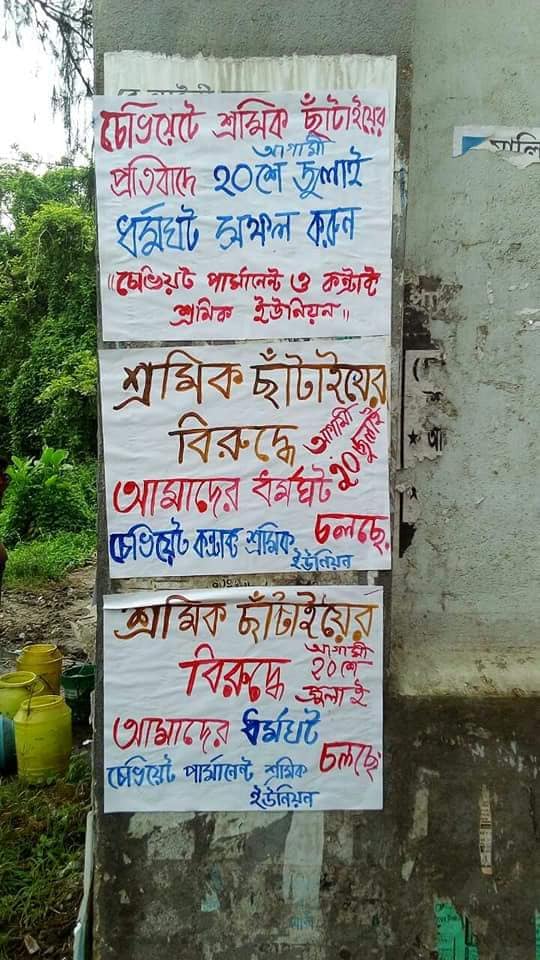 চেভিয়েটে শ্রমিক ছাঁটাইয়ের
আগামী
প্রতিবাদে ২০শে জুলাই
ধর্মঘট সফল করুন
"চেভিয়ট পার্মানেন্ট ও কন্ট্রাক্ট
শ্রমিক ইউনিয়ন"
শ্রমিক ছাঁটাইয়ের
বিরুদ্ধে আগামী ২০ জুলাই
আমাদের ধর্মঘট চলছে
চেভিয়েট কন্ট্রাক্ট শ্রমিক
ইউনিয়ন
শ্রমিক ছাঁটাইয়ের
আগামী
বিরুদ্ধে ২০শে
জুলাই
আমাদের ধর্মঘট
চলছে
চেভিয়েট পার্মানেন্ট শ্রমিক
ইউনিয়ন